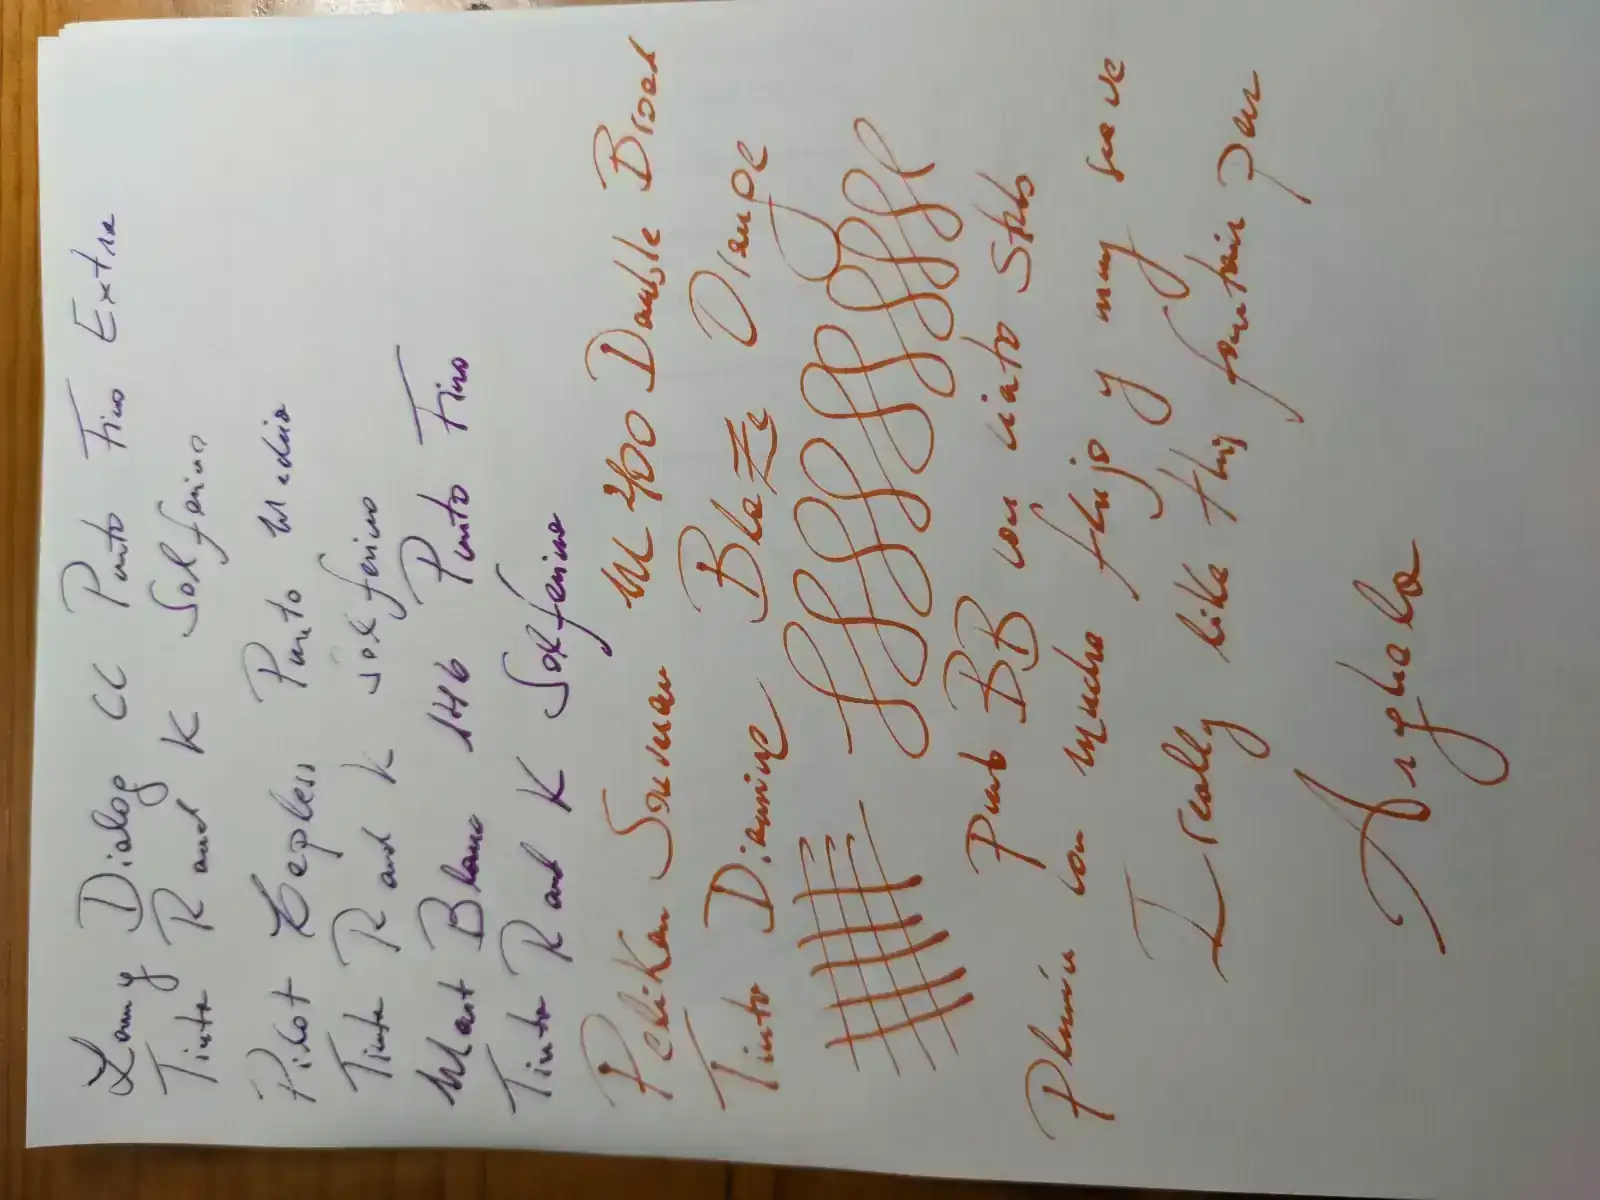 Lamy Dialog CC Punto Fino Extra
Tinta R and K Solferino
Pilot Capless Punto Medio
Tinta R and K Solferino
Mont Blanc 146 Punto Fino
Tinta R and K Solferino
Pelikan Souveran M400 Double Broad
Tinta Diamine Blaze Orange
Punto BB con cierto Stub
Plumín con mucho flujo y muy suave
I really like this fountain pen